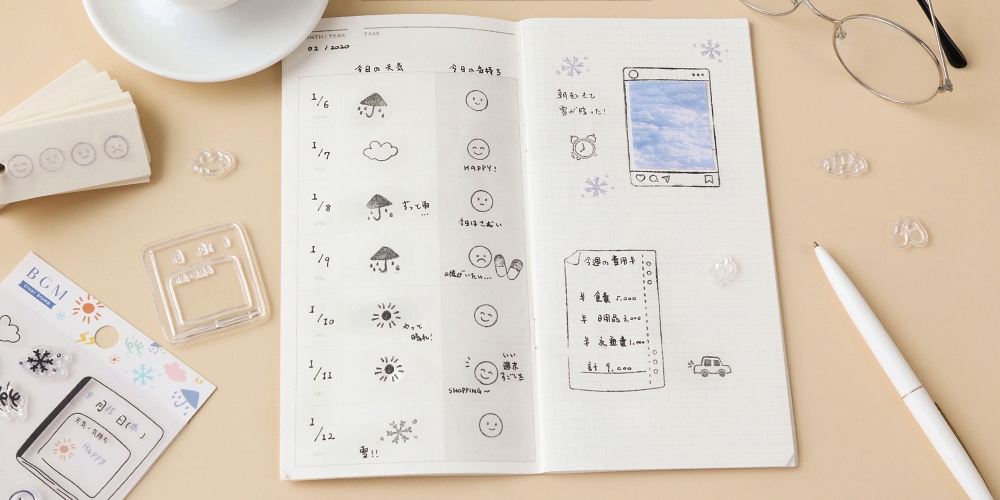 MONTH / YEAR TASK
01 / 2020
今日の天気 今日の気持ち
1/6
1/7
HAPPY!
1/8
ずっと雨…
今日はさむい
1/9
1/10
やっと
晴れ!
1/11
いい
週末
すごした
SHOPPING~
1/12
雪!!
朝起きて
雪が降った!
今週の費用¥
¥ 食費 5,000
¥ 日用品 3,000
¥ 交通費 1,000
計 9,000
BGM
Clear Stamp
9月15日(水)
天気・気持ち
Happy